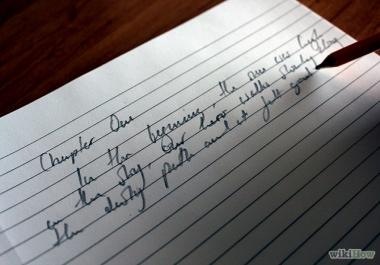 Chapter One
In the beginning, the sun was high
in the sky. Our hero walks slowly along
the dusty path and it felt good
wikiHow